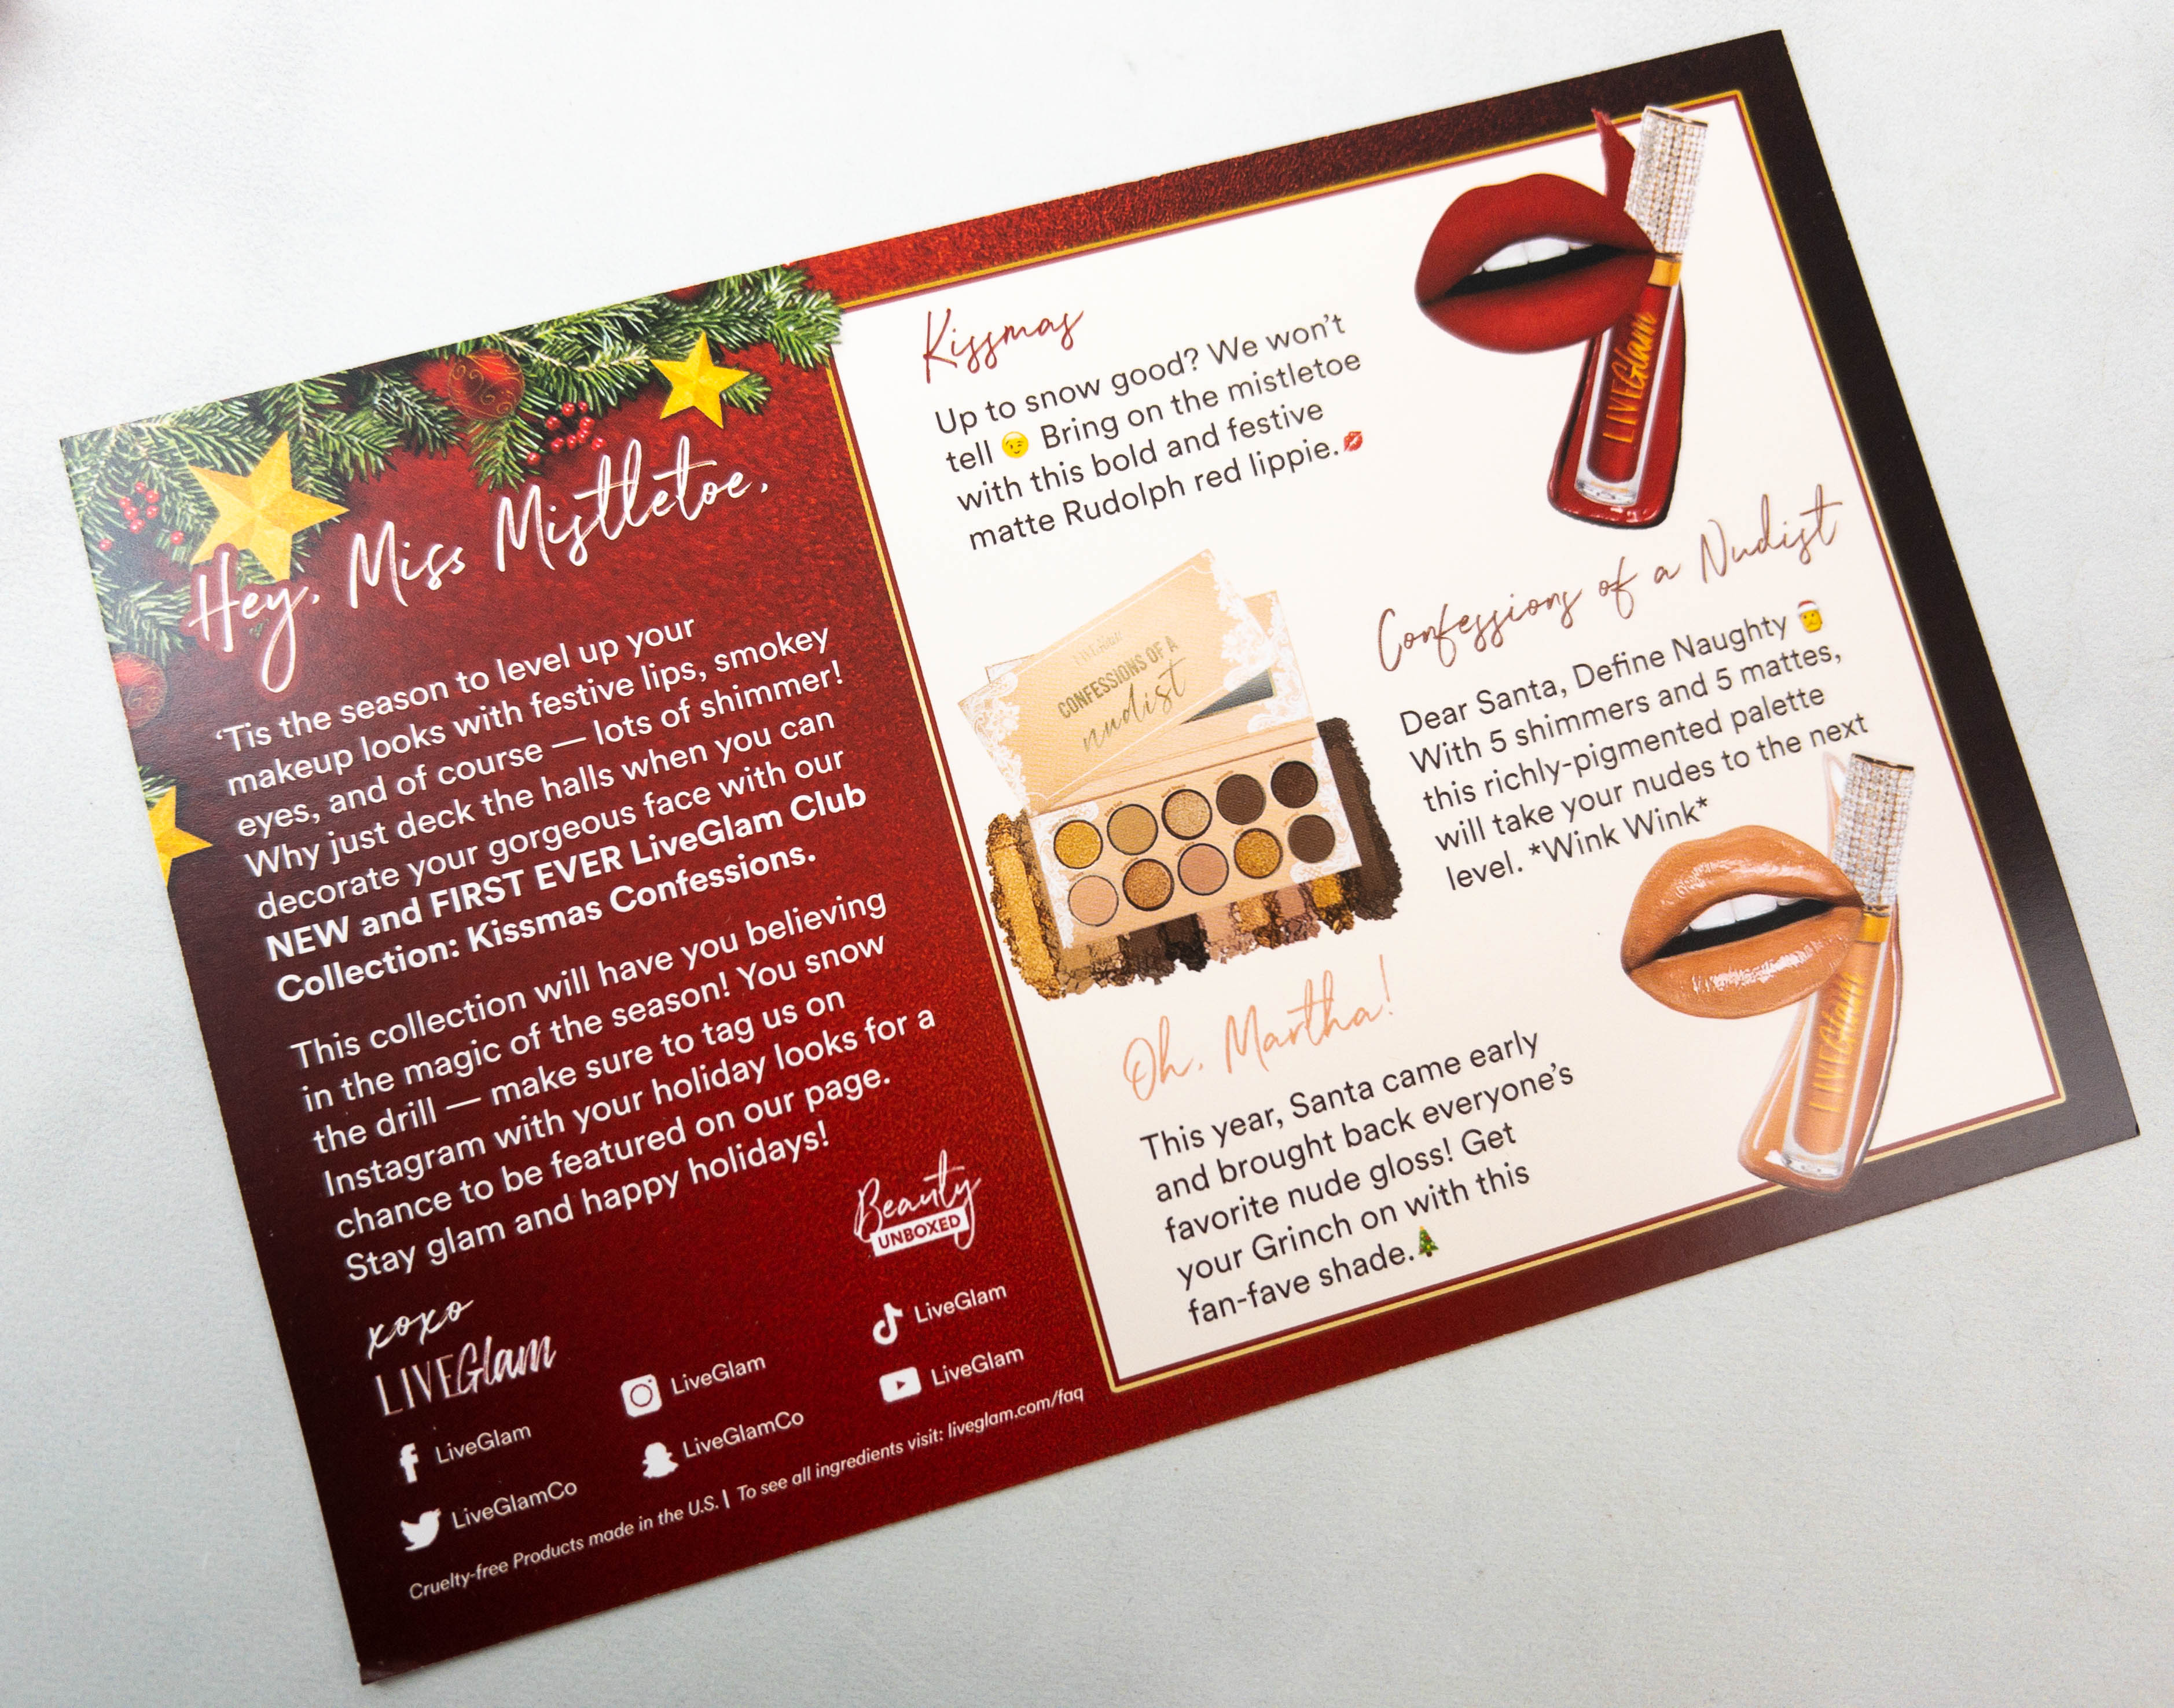 Hey, Miss Mistletoe,
‘Tis the season to level up your
makeup looks with festive lips, smokey
eyes, and of course — lots of shimmer!
Why just deck the halls when you can
decorate your gorgeous face with our
NEW and FIRST EVER LiveGlam Club
Collection: Kissmas Confessions.
This collection will have you believing
in the magic of the season! You snow
the drill — make sure to tag us on
Instagram with your holiday looks for a
chance to be featured on our page.
Stay glam and happy holidays!
xoxo
LIVEGlam
Beauty
UNBOXED
LiveGlam
LiveGlam
LiveGlam
LiveGlamCo
LiveGlamCo
LiveGlam
Cruelty-free Products made in the U.S. | To see all ingredients visit: liveglam.com/faq
Kissmas
Up to snow good? We won’t
tell 😉 Bring on the mistletoe
with this bold and festive
matte Rudolph red lippie.💋
LIVEGlam
Confessions of a Nudist
Dear Santa, Define Naughty 🎅
With 5 shimmers and 5 mattes,
this richly-pigmented palette
will take your nudes to the next
level. *Wink Wink*
LIVEGlam
CONFESSIONS OF A
nudist
Oh, Martha!
This year, Santa came early
and brought back everyone’s
favorite nude gloss! Get
your Grinch on with this
fan-fave shade.🎄
LIVEGlam